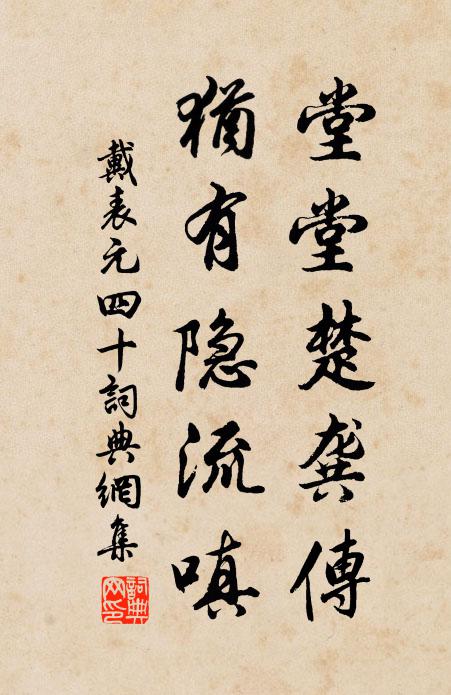 堂堂楚龔傳
猶有隐流嗔
戴表元四十詞典網集
詞典网印